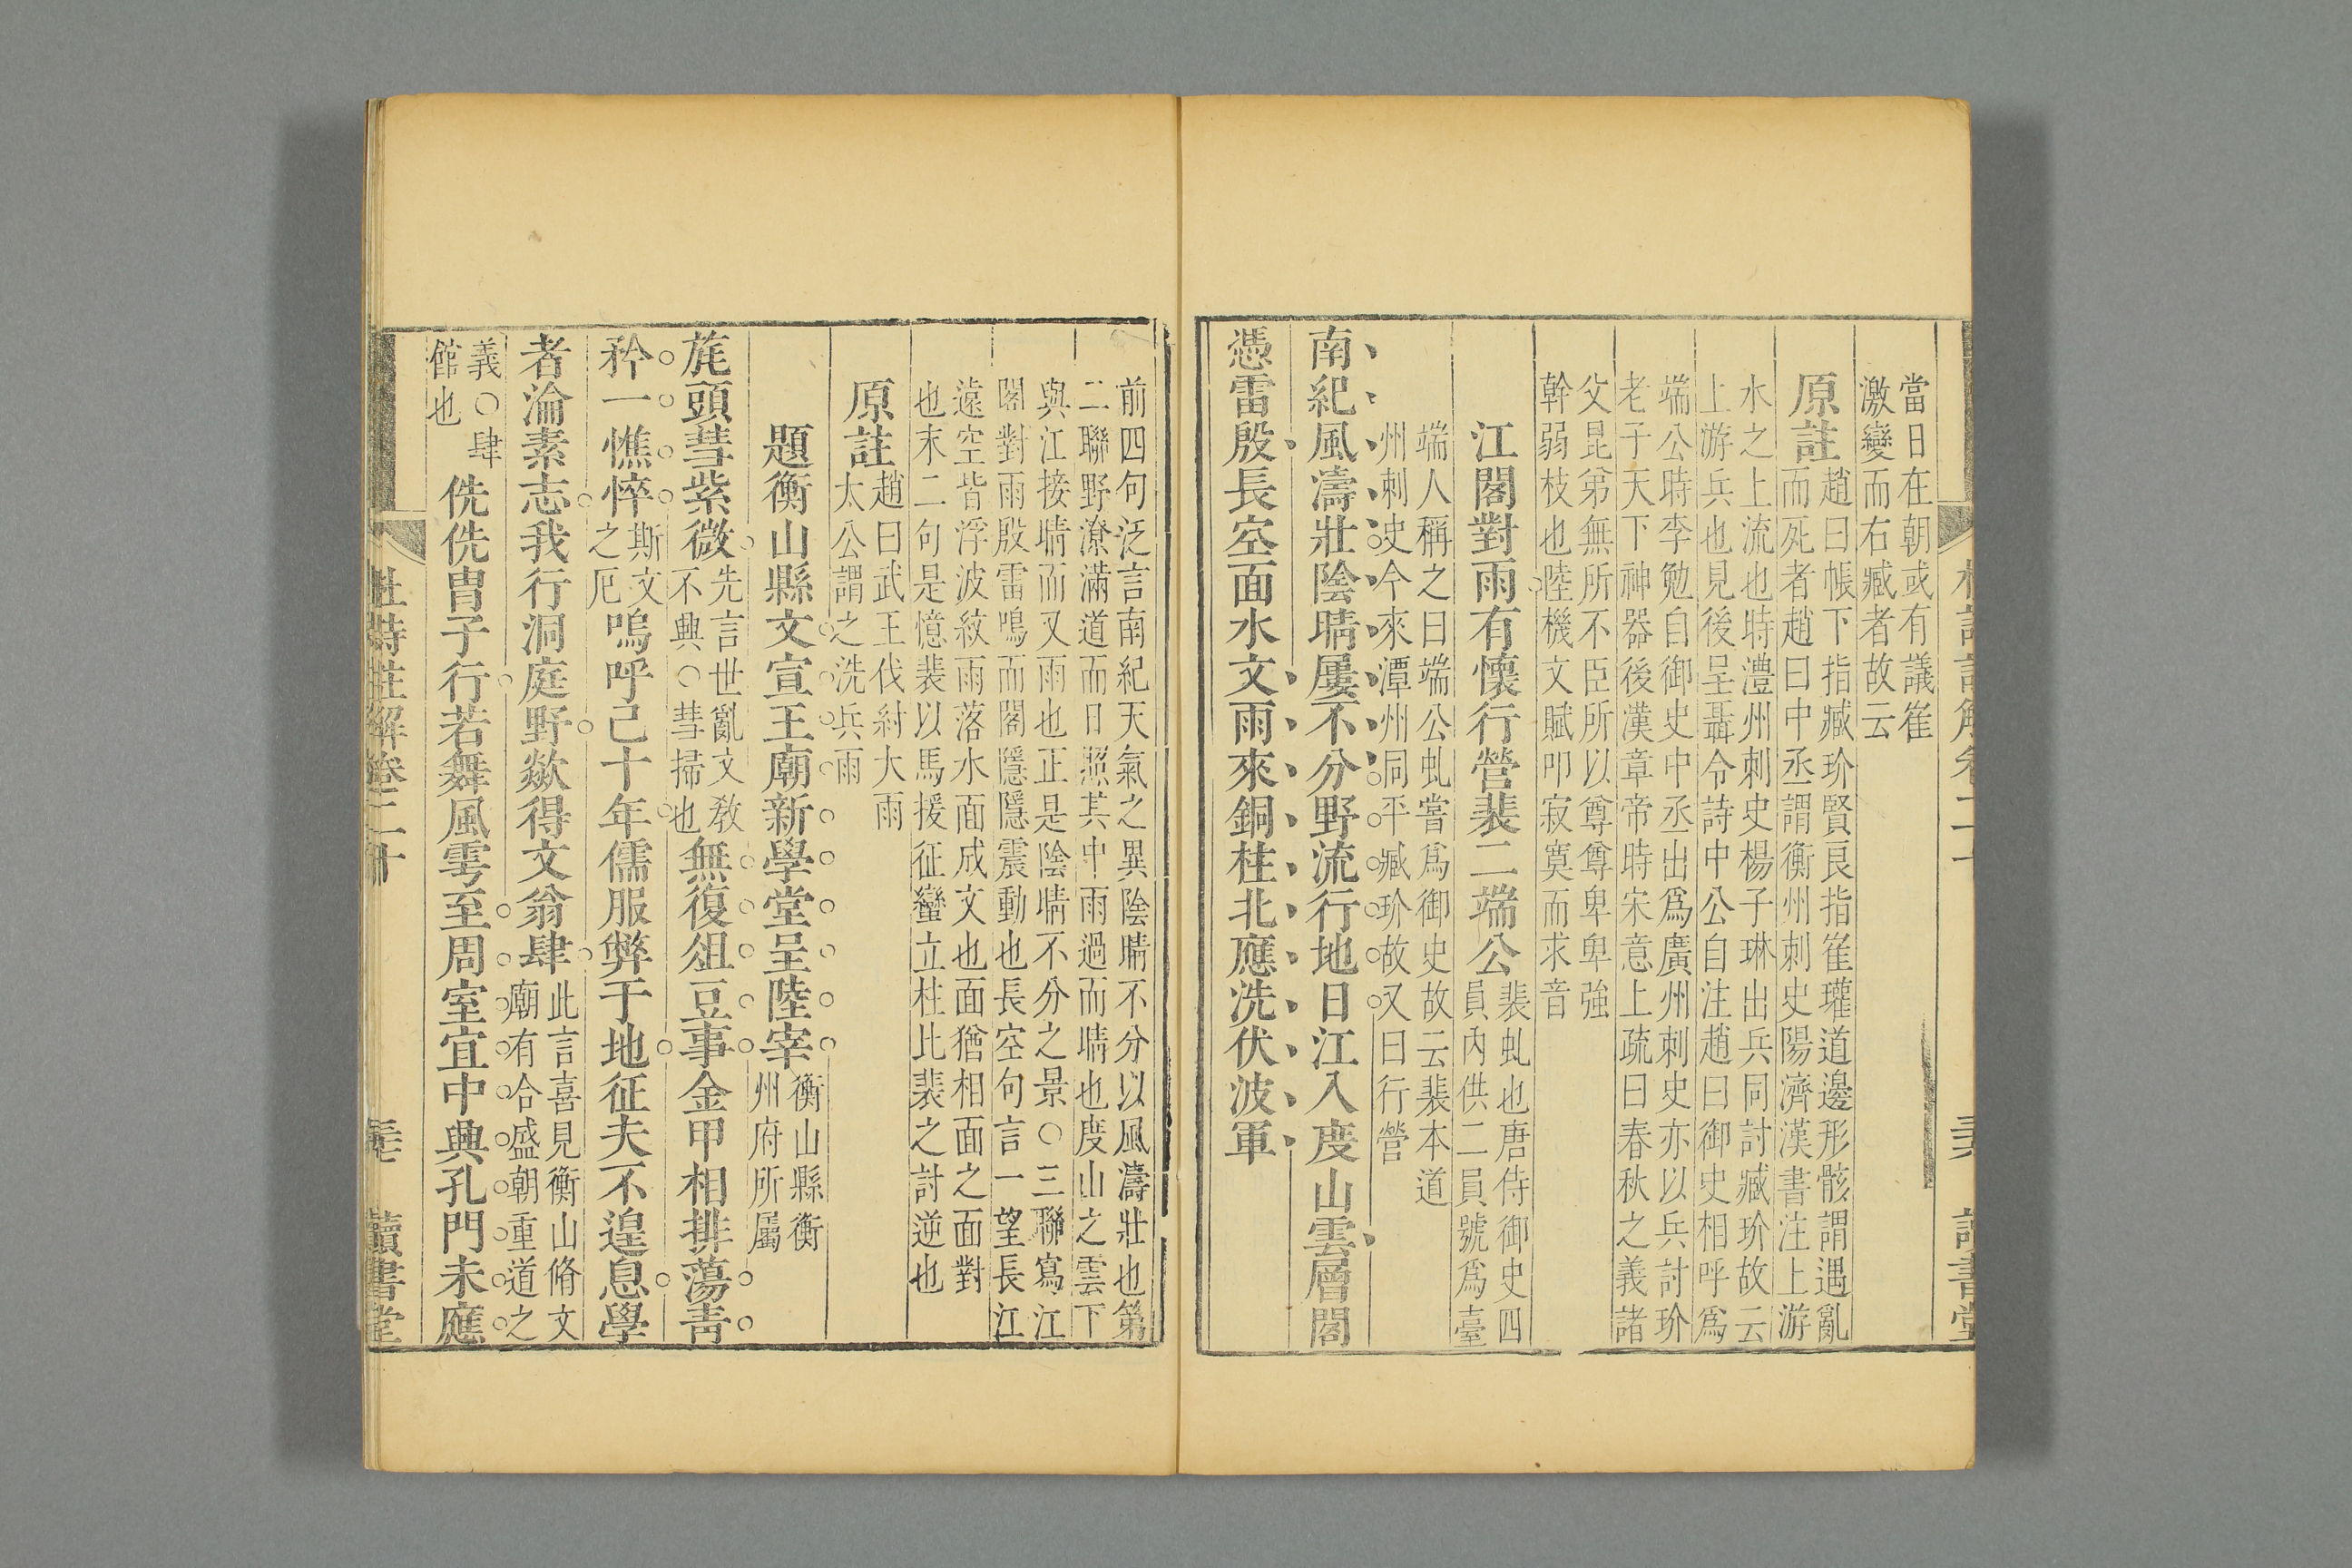 當日在朝或有議崔
激變而右臧者故云
原註
趙曰帳下指臧玠賢良指崔瓘道邊形骸謂遇亂
而死者趙曰中丞謂衡州刺史陽濟漢書注上游
水之上流也時澧州刺史楊子琳出兵同討臧玠故云
上游兵也見後呈聶令詩中公自注趙曰御史相呼爲
端公時李勉自御史中丞出爲廣州刺史亦以兵討玠
老子天下神器後漢章帝時宋意上疏曰春秋之義諸
父昆弟無所不臣所以尊尊卑卑強
幹弱枝也陸機文賦叩寂寞而求音
江閣對雨有懷行營裴二端公
裴虬也唐侍御史四
員內供二員號爲臺
端人稱之曰端公虬嘗爲御史故云裴本道
州刺史今來潭州同平臧玠故又曰行營
南紀風濤壯陰晴屢不分野流行地日江入度山雲層閣
憑雷殷長空面水文雨來銅柱北應洗伏波軍
前四句泛言南紀天氣之異陰晴不分以風濤壯也第
二聯野潦滿道而日照其中雨過而晴也度山之雲下
與江接晴而又雨也正是陰晴不分之景○三聯寫江
閣對雨殷雷鳴而閣隱隱震動也長空句言一望長江
遠空皆浮波紋雨落水面成文也面猶相面之面對
也末二句是憶裴以馬援征蠻立柱比裴之討逆也
原註
趙曰武王伐紂大雨
太公謂之洗兵雨
題衡山縣文宣王廟新學堂呈陸宰
衡山縣衡
州府所屬
旄頭彗紫微
先言世亂文教
不興○彗掃也
無復俎豆事金甲相排蕩青
衿一憔悴
斯文
之厄
嗚呼已十年儒服弊于地征夫不遑息學
者淪素志我行洞庭野歘得文翁肆
此言喜見衡山脩文
廟有合盛朝重道之
義○肆
館也
侁侁冑子行若舞風雩至周室宜中興孔門未應
杜詩註解卷二十
讀書堂